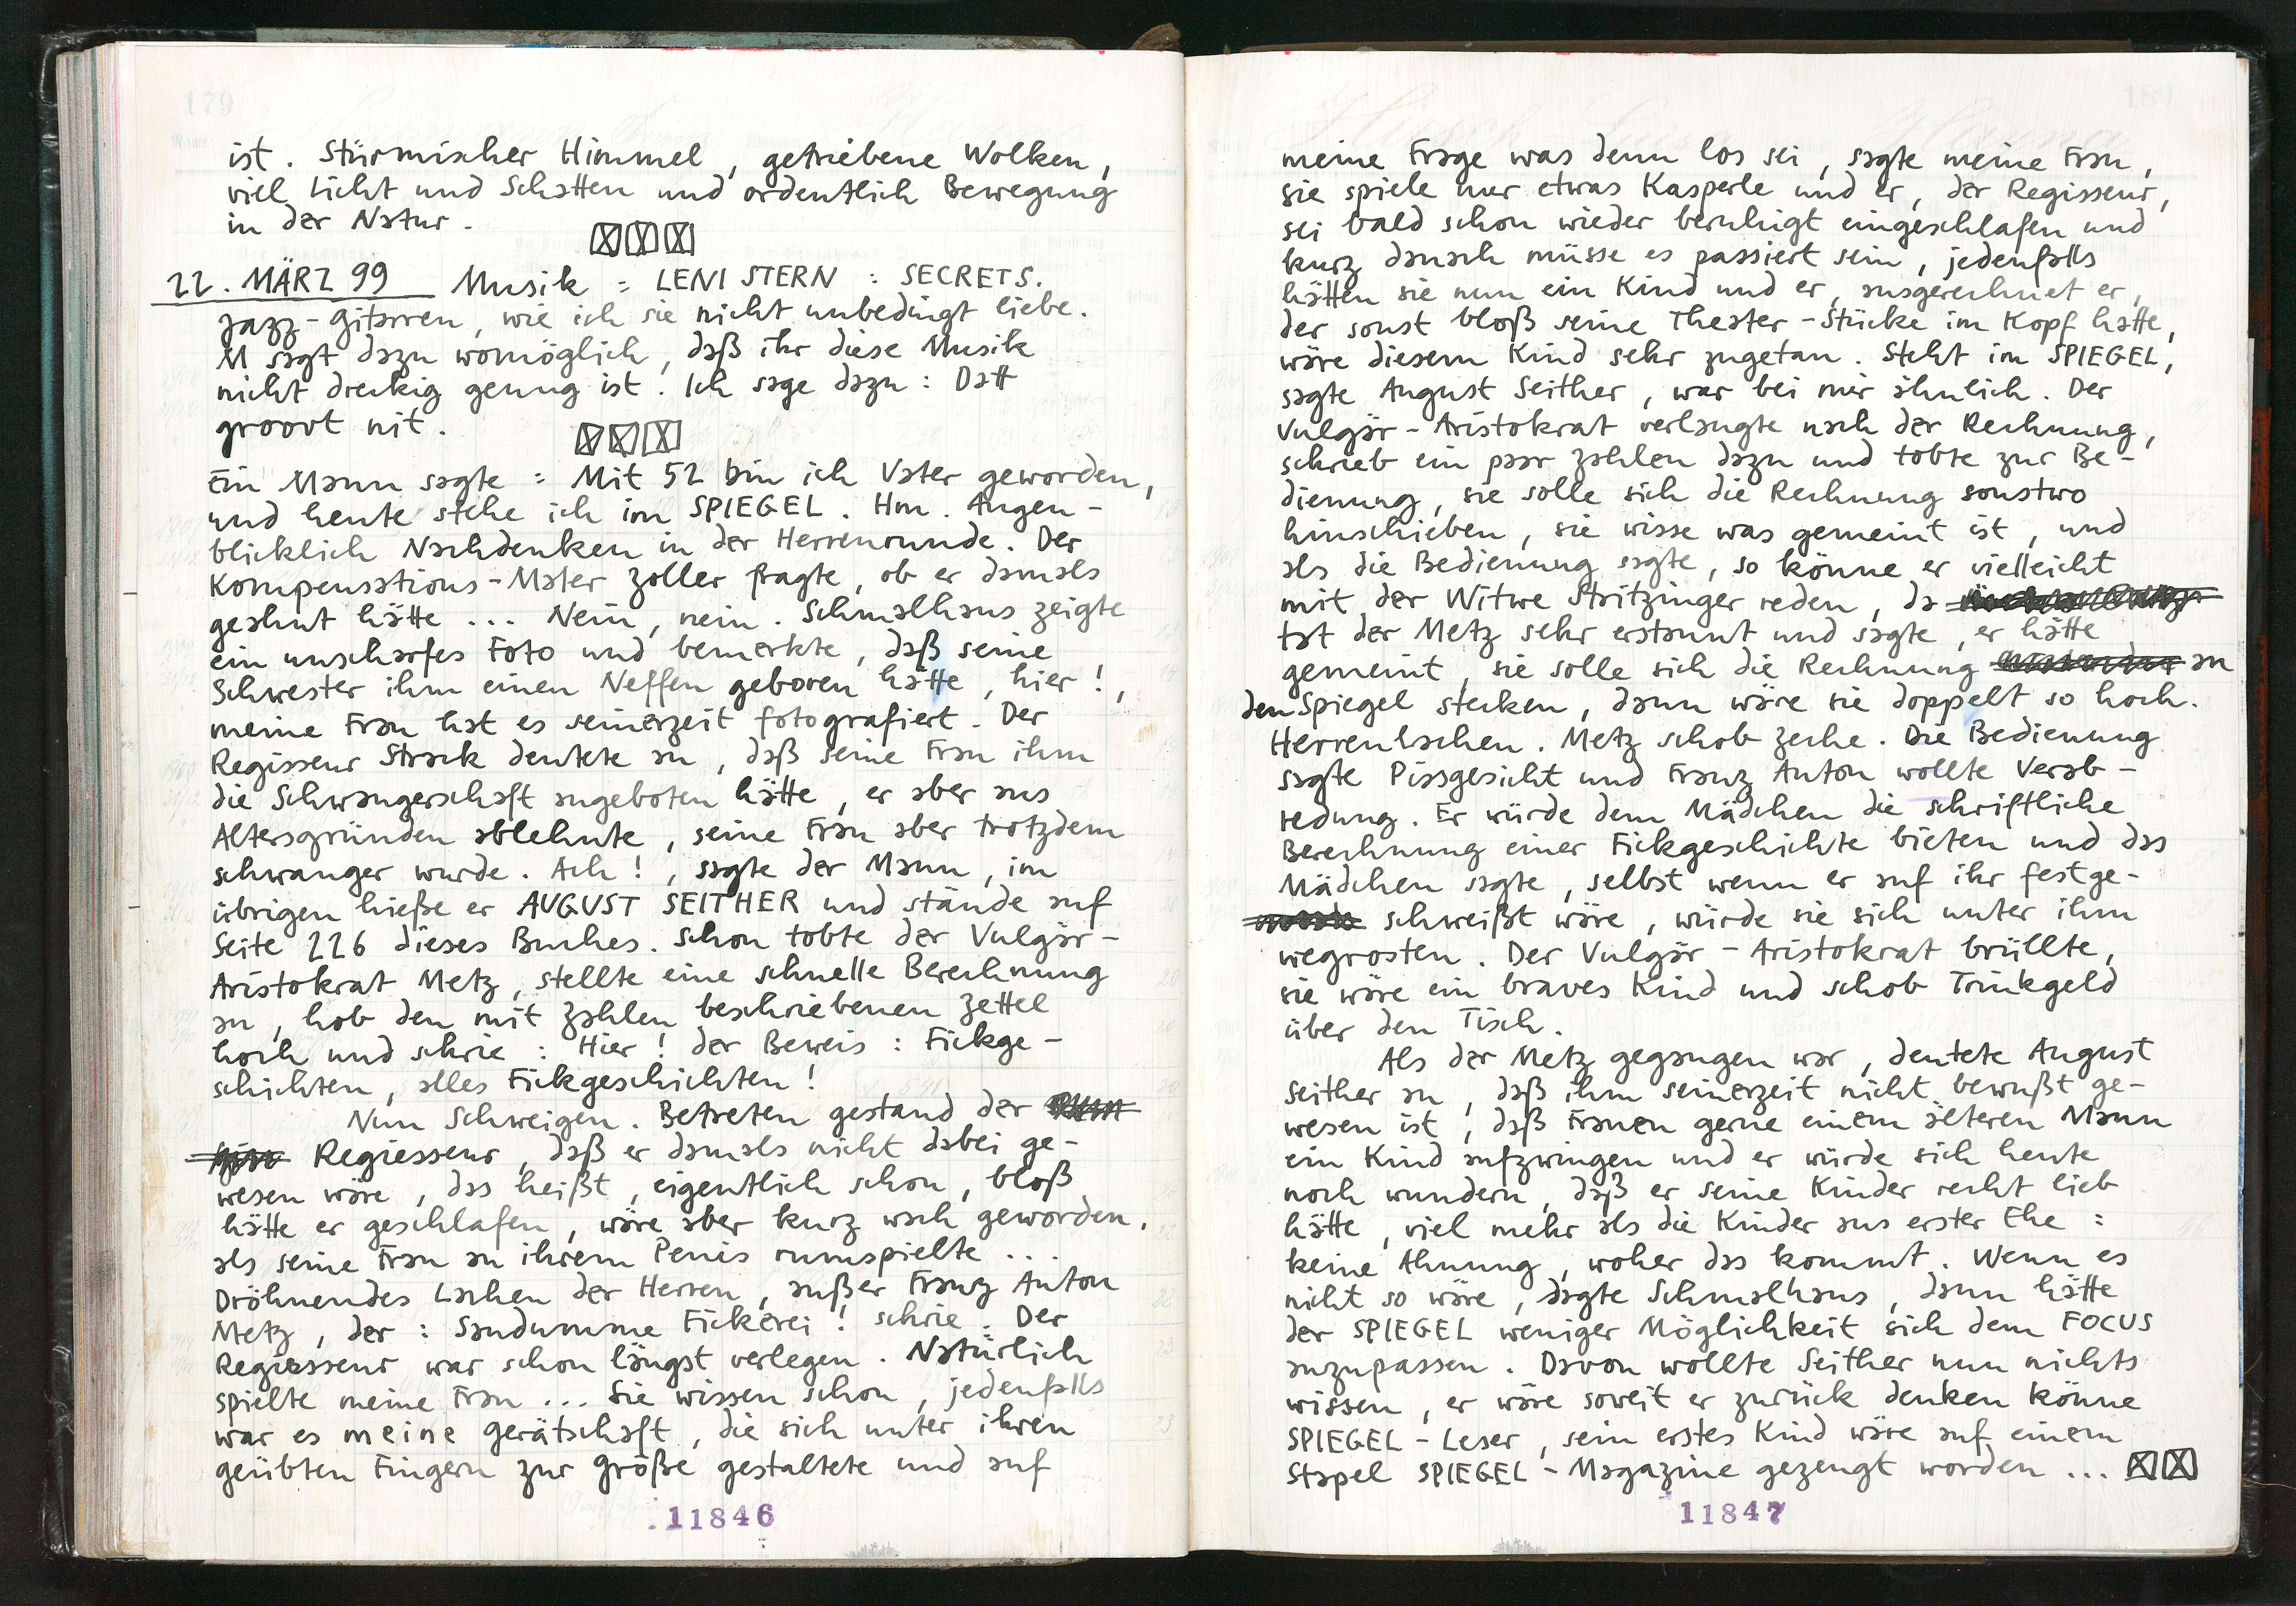 179
ist. Stürmischer Himmel, getriebene Wolken,
viel Licht und Schatten und ordentlich Bewegung
in der Natur.
22. MÄRZ 99 Musik: LENI STERN: SECRETS.
Jazz-Gitarren, wie ich sie nicht unbedingt liebe.
M sagt dazu womöglich, daß ihr diese Musik
nicht dreckig genug ist. Ich sage dazu: Datt
groovt nit.
Ein Mann sagte: Mit 52 bin ich Vater geworden,
und heute stehe ich im SPIEGEL. Hm. Augen-
blicklich Nachdenken in der Herrenrunde. Der
Kompensations-Mater Zoller fragte, ob er damals
geahnt hätte ... Nein, nein. Schmalhaus zeigte
ein unscharfes Foto und bemerkte, daß seine
Schwester ihm einen Neffen geboren hätte, hier!,
meine Frau hat es seinerzeit fotografiert. Der
Regisseur Strack deutete an, daß seine Frau ihm
die Schwangerschaft angeboten hätte, er aber aus
Altersgründen ablehnte, seine Frau aber trotzdem
schwanger wurde. Ach!, sagte der Mann, im
übrigen hieße er AUGUST SEITHER und stände auf
Seite 226 dieses Buches. Schon tobte der Vulgär-
Aristokrat Metz, stellte eine schnelle Berechnung
an, hob den mit Zahlen beschriebenen Zettel
hoch und schrie: Hier! der Beweis: Fickge-
schichten, alles Fickgeschichten!
Nun Schweigen. Betreten gestand der
Regiesseur, daß er damals nicht dabei ge-
wesen wäre, das heißt, eigentlich schon, bloß
hätte er geschlafen, wäre aber kurz wach geworden,
als seine Frau an ihrem Penis rumspielte ...
Dröhnendes Lachen der Herren, außer Franz Anton
Metz, der: Saudumme Fickerei! schrie. Der
Regiesseur war schon längst verlegen. Natürlich
spielte meine Frau ... Sie wissen schon, jedenfalls
war es meine Gerätschaft, die sich unter ihren
geübten Fingern zur Größe gestaltete und auf
11846
meine Frage was denn los sei, sagte meine Frau,
sie spiele nur etwas Kasperle und er, der Regisseur,
sei bald schon wieder beruhigt eingeschlafen und
kurz danach müsse es passiert sein, jedenfalls
hätten sie nun ein Kind und er, ausgerechnet er,
der sonst bloß seine Theater-Stücke im Kopf hatte,
wäre diesem Kind sehr zugetan. Steht im SPIEGEL,
sagte August Seither, war bei mir ähnlich. Der
Vulgär-Aristokrat verlangte nach der Rechnung,
schrieb ein paar Zahlen dazu und tobte zur Be-
dienung, sie solle sich die Rechnung sonstwo
hinschieben, sie wisse was gemeint ist, und
als die Bedienung sagte, so könne er vielleicht
mit der Witwe Stritzinger reden, da
tat der Metz sehr erstaunt und sagte, er hätte
gemeint, sie solle sich die Rechnung an
den Spiegel stecken, dann wäre sie doppelt so hoch.
Herrenlachen. Metz schob Zeche. Die Bedienung
sagte Pissgesicht und Franz Anton wollte Verab-
redung. Er würde dem Mädchen die schriftliche
Berechnung einer Fickgeschichte bieten und das
Mädchen sagte, selbst wenn er auf ihr festge-
schweißt wäre, würde sie sich unter ihm
wegrosten. Der Vulgär-Aristokrat brüllte,
sie wäre ein braves Kind und schob Trinkgeld
über den Tisch.
Als der Metz gegangen war, deutete August
Seither an, daß ihm seinerzeit nicht bewußt ge-
wesen ist, daß Frauen gerne einem älteren Mann
ein Kind aufzwingen und er würde sich heute
noch wundern, daß er seine Kinder recht lieb
hätte, viel mehr als die Kinder aus erster Ehe:
keine Ahnung, woher das kommt. Wenn es
nicht so wäre, sagte Schmalhaus, dann hätte
der SPIEGEL weniger Möglichkeit sich dem FOCUS
anzupassen. Davon wollte Seither nun nichts
wissen, er wäre soweit er zurück denken könne
SPIEGEL-Leser, sein erstes Kind wäre auf einem
Stapel SPIEGEL-Magazine gezeugt worden ...
11847